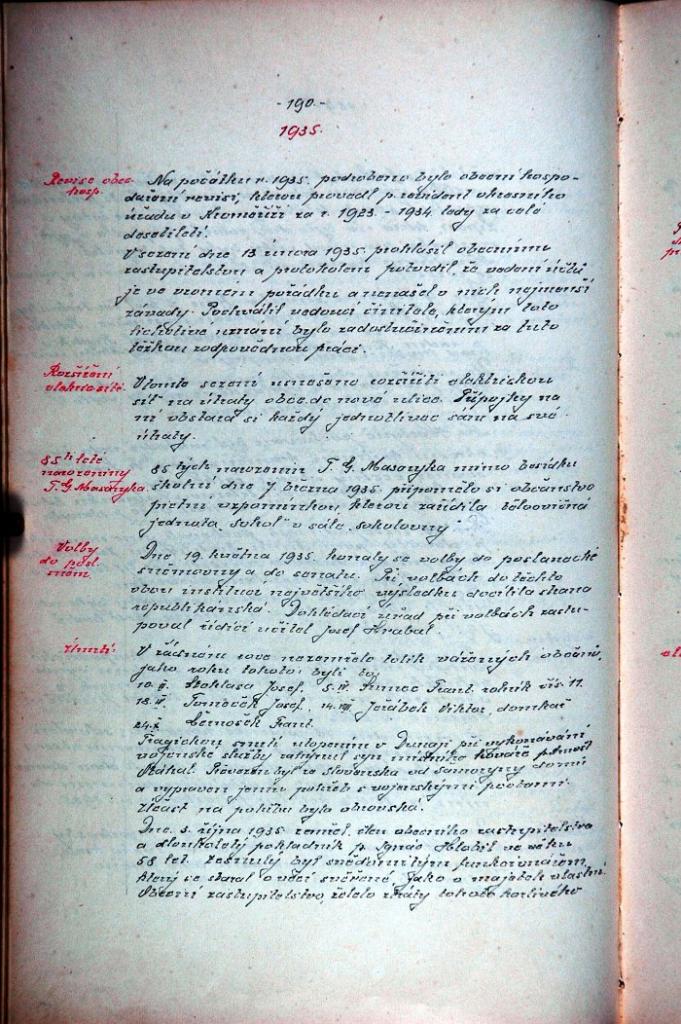 - 190 -
1935.
Revise obec. hosp.
Na počátku r. 1935. podrobeno bylo obecní hospo-
daření revisi, kterou provedl p. revident okresního
úřadu v Kroměříži za r. 1923 - 1934. tedy za celé
desetiletí.
V sezení dne 13 února 1935. prohlásil obecnímu
zastupitelstvu a protokolem potvrdil, že vedení účtů
je ve vzorném pořádku a nenašel v nich nejmenší
závady. Pochválil vedoucí činitele, kterým toto
lichotivé uznání bylo zadostiučiněním za tuto
těžkou zodpovědnou práci.
Rozšíření elektr. sítě.
V tomto sezení usnešeno rozšířiti elektrickou
síť na útraty obce do nové ulice. Přípojky na
ní obstará si každý jednotlivec sám na své
útraty.
85ti leté narozeniny T. G. Masaryka.
85 tých narozenin T. G. Masaryka mimo besídku
školní dne 7 března 1935. připomělo si občanstvo
pietní vzpomínkou, kterou zařídila tělocvičná
jednota „Sokol" v sále „sokolovny".
Volby do posl. sněm.
Dne 19. května 1935. konaly se volby do poslanecké
sněmovny a do senátu. Při volbách do těchto
obou institucí největšího výsledku docílila strana
republikánská. Dohlédací úřad při volbách zastu-
poval řídící učitel Josef Hrabal.
Úmrtí:
V žádném roce nezemřelo tolik vážených občanů,
jako roku tohoto: byli to,
10. II. Stoklasa Josef, 5. IV. Frant. rolník čís. 11.
18. IV. Tomeček Josef, 14. VIII Jeřábek Viktor, domkař
24. X Frant.
Tragickou smrtí utopením v Dunaji při vykonávání
vojenské služby zahynul syn místního kováře p.
Převezen byl ze Slovenska od domů
a vypraven jemu pohřeb s vojenskými poctami.
Účast na pohřbu byla obrovská.
Dne 3. října 1935 zemřel člen obecního zastupitelstva
a dlouholetý pokladník p. Ignác ve věku
58 let. Zesnulý byl svědomitým funkcionářem,
který se staral o věci svěřené jako o majetek vlastní.
Obecní zastupitelstvo želelo ztráty tohoto horlivého